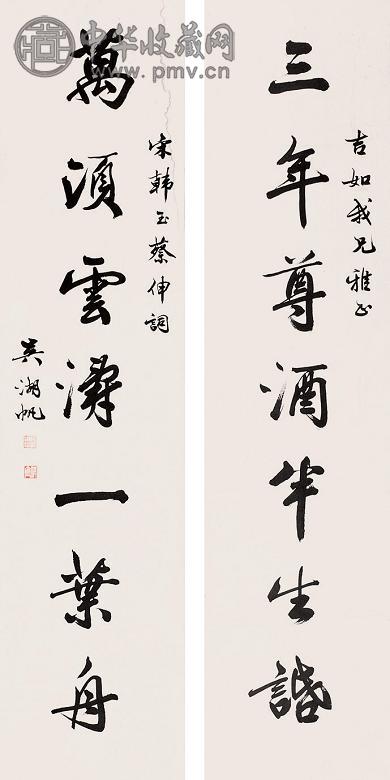 中华收藏网
www.pmv.cn
吉如我兄雅正
三年尊酒半生
萬頃雲濤一葉舟
宋韓玉蔡伸詞
吳湖帆